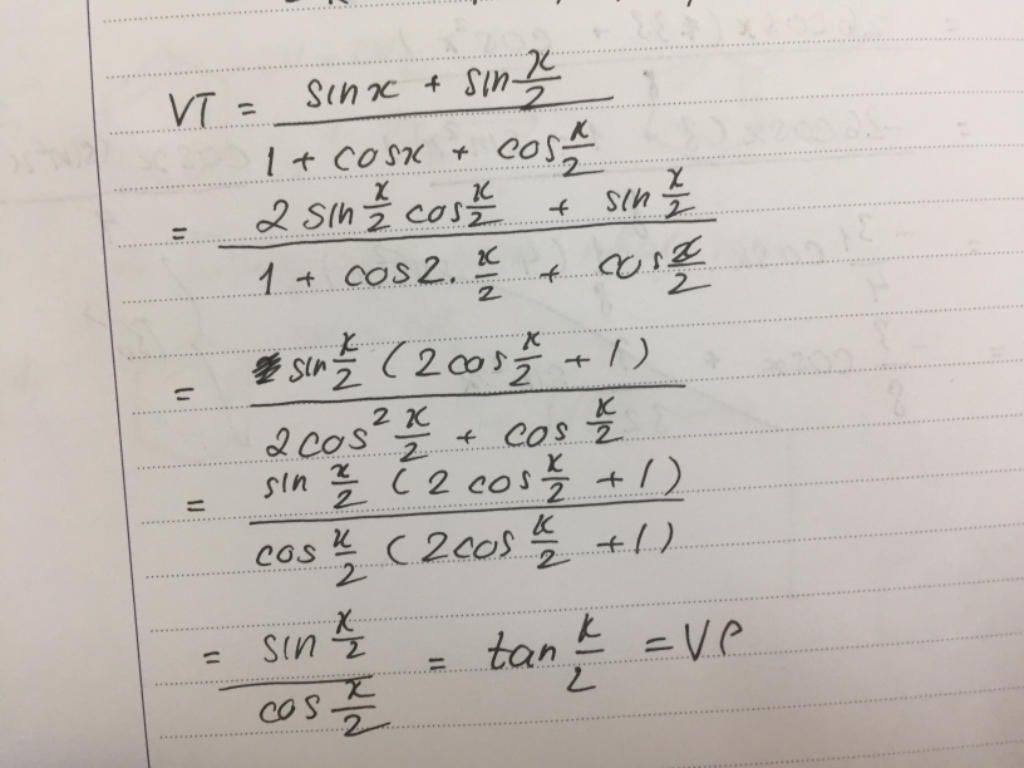 VT = (sin x + sin x/2) / (1 + cos x + cos x/2)
= (2 sin x/2 cos x/2 + sin x/2) / (1 + cos 2. x/2 + cos x/2)
= sin x/2 (2 cos x/2 + 1) / (2 cos² x/2 + cos x/2)
= sin x/2 (2 cos x/2 + 1) / (cos x/2 (2 cos x/2 + 1))
= (sin x/2) / (cos x/2) = tan x/2 = VP